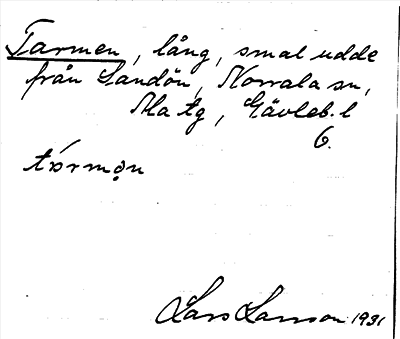 Tarmen, lång, smal udde
från Sandön, Norrala sn,
Ala tg, Gävleb. l
6.
tármǝn
Lars Larsson 1931